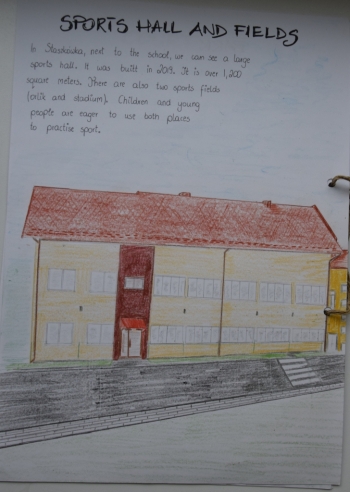 SPORTS HALL AND FIELDS
In Staszkówka, next to the school, we can see a large
sports hall. It was built in 2013. It is over 1,200
square meters. There are also two sports fields
(orlik and stadium). Children and young
people are eager to use both places
to practise sport.